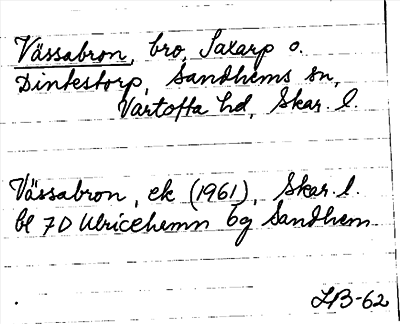 Vässabron, bro, Saxarp o.
Dintestorp, Sandhems sn,
Vartofta hd, Skar. l.
Vässabron, ek (1961), Skar. l.
bl 7D Ulricehamn 6g Sandhem
LB-62